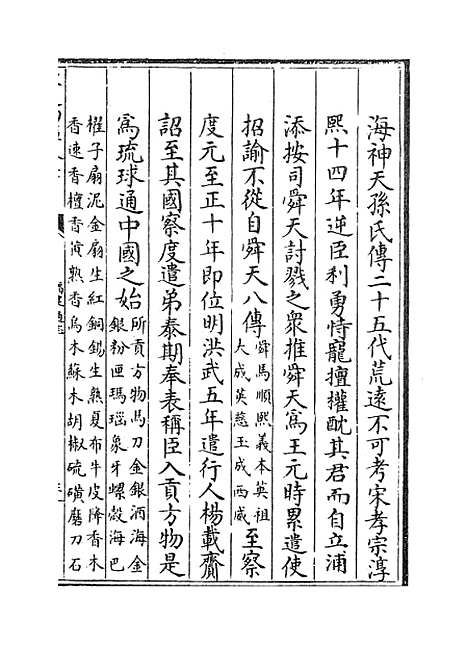 海神天孫氏傳二十五代荒遠不可考宋孝宗淳
熙十四年逆臣利勇恃寵擅權酖其君而自立浦
添按司舜天討戮之衆推舜天為王元時累遣使
招諭不從自舜天八傳舜馬順熙義本英祖大成英慈玉成西威至察
度元至正十年即位明洪武五年遣行人楊載齎
詔至其國察度遣弟泰期奉表稱臣入貢方物是
為琉球通中國之始所貢方物馬刀金銀酒海金銀粉匣瑪瑙象牙螺殼海巴
櫂子扇泥金扇生紅銅錫生熟夏布牛皮降香木
香速香檀香黄熟香烏木蘇木胡椒硫磺磨刀石